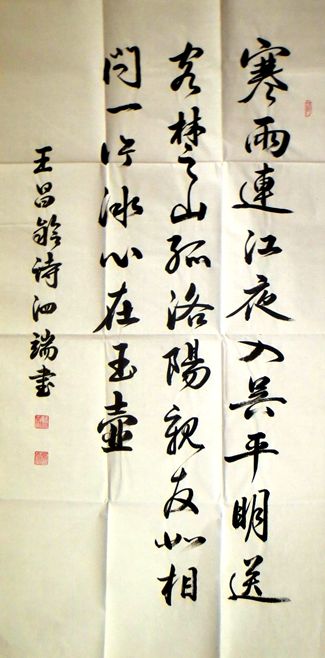 寒雨連江夜入吳平明送
客楚山孤洛陽親友如相
問一片冰心在玉壺
王昌齡詩泗端書